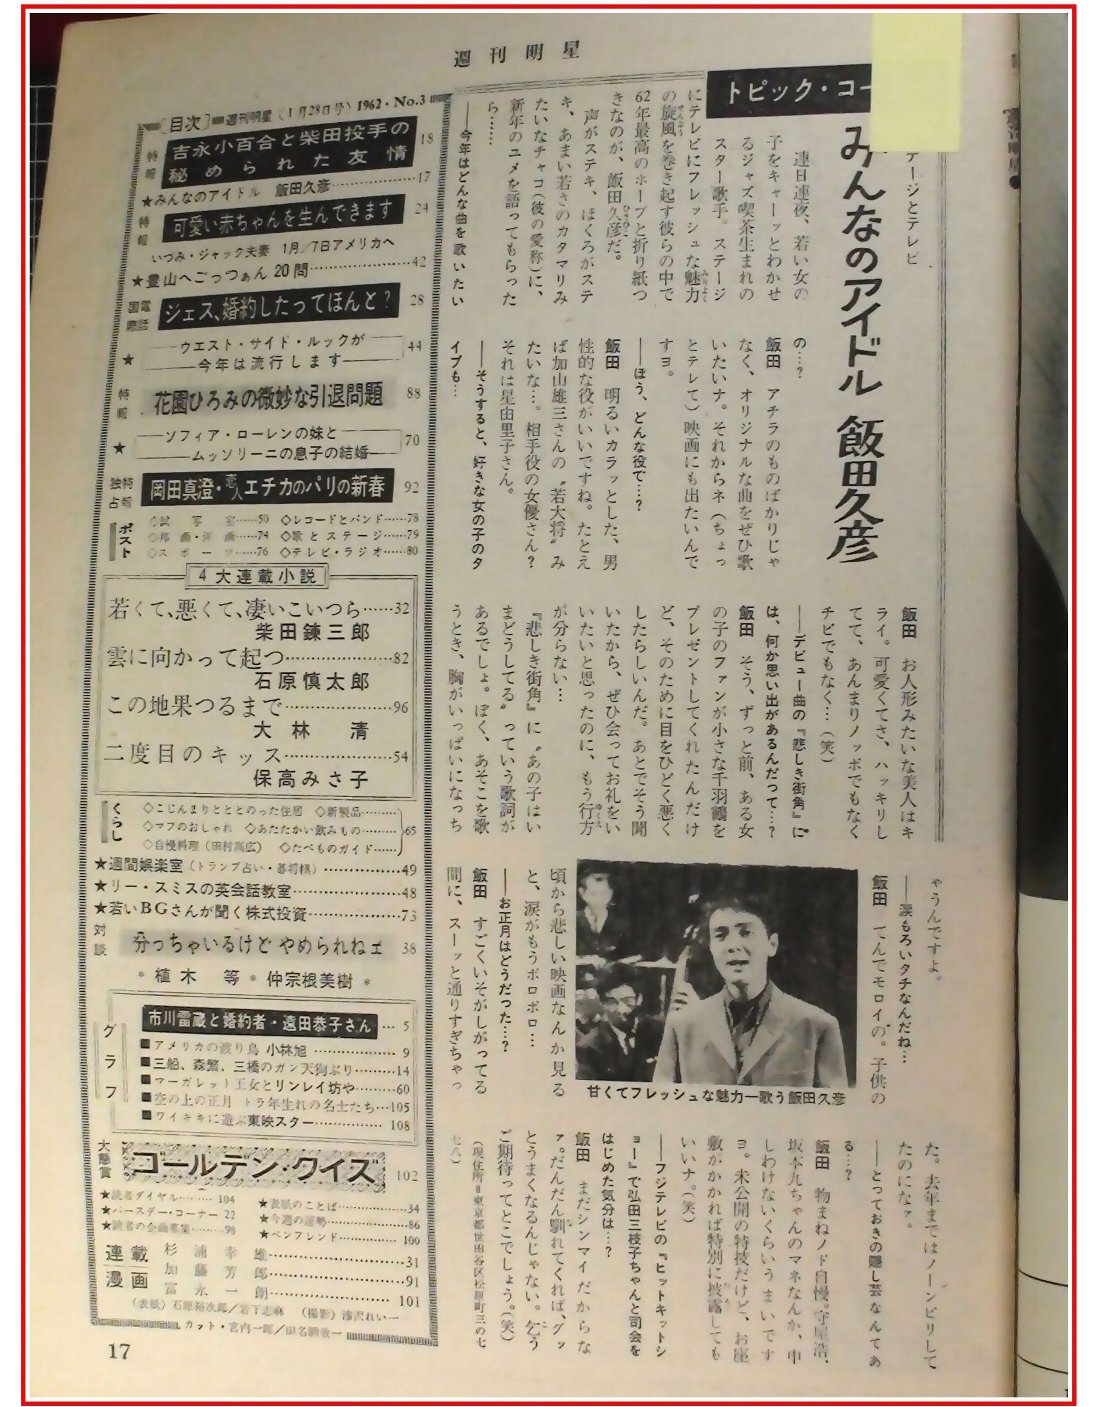 週刊明星
トピック・コー
テージとテレビ
みんなのアイドル 飯田久彦
連日連夜、若い女の
子をキャーッとわかせ
るジャズ喫茶生まれの
スター歌手。ステージ
にテレビにフレッシュな魅力
の旋風を巻き起す彼らの中で
62年最高のホープと折り紙つ
きなのが、飯田久彦だ。
声がステキ、ほくろがステ
キ、あまい若さのカタマリみ
たいなチャコ（彼の愛称）に、
新年のユメを語ってもらった
ら……
――今年はどんな曲を歌いたい
の…?
飯田 アチラのものばかりじゃ
なく、オリジナルな曲をぜひ歌
いたいナ。それからネ（ちょっ
とテレて）映画にも出たいんで
すヨ。
――ほう、どんな役で…?
飯田 明るいカラッとした、男
性的な役がいいですね。たとえ
ば加山雄三さんの〝若大将〟み
たいな…。相手役の女優さん?
それは星由里子さん。
――そうすると、好きな女の子のタ
イプも…
飯田 お人形みたいな美人はキ
ライ。可愛くてさ、ハッキリし
てて、あんまりノッポでもなく
チビでもなく…（笑）
――デビュー曲の『悲しき街角』に
は、何か思い出があるんだって…?
飯田 そう、ずっと前、ある女
の子のファンが小さな千羽鶴を
プレゼントしてくれたんだけ
ど、そのために目をひどく悪く
したらしいんだ。あとでそう聞
いたから、ぜひ会ってお礼をい
いたいと思ったのに、もう行方
が分らない…
『悲しき街角』に〝あの子はい
まどうしてる〟っていう歌詞が
あるでしょ。ぼく、あそこを歌
うとき、胸がいっぱいになっち
ゃうんですよ。
――涙もろいタチなんだね…
飯田 てんでモロイの。子供の
頃から悲しい映画なんか見る
と、涙がもうボロボロ…
――お正月はどうだった…?
飯田 すごくいそがしがってる
間に、スーッと通りすぎちゃっ
た。去年まではノーンビリして
たのになァ。
――とっておきの隠し芸なんてあ
る…?
飯田 物まねノド自慢。守屋浩、
坂本九ちゃんのマネなんか、申
しわけないくらいうまいです
ヨ。未公開の特技だけど、お座
敷がかかれば特別に披露しても
いいナ。（笑）
――フジテレビの『ヒットキットシ
ョー』で弘田三枝子ちゃんと司会を
はじめた気分は…?
飯田 まだシンマイだからな
ァ。だんだん馴れてくれば、グッ
とうまくなるんじゃない。乞う
ご期待ってとこでしょう。（笑）
（現住所＝東京都世田谷区松原町三の七
七八）
甘くてフレッシュな魅力―歌う飯田久彦
［目次］ 週刊明星（1月28日号）1962・No.3
特報 吉永小百合と柴田投手の
秘められた友情 18
★みんなのアイドル 飯田久彦……17
特報 可愛い赤ちゃんを生んできます 24
いつみ・ジャック夫妻 1月／7日アメリカへ
★豊山へごっつぁん20問……42
国際電話 ジェス、婚約したってほんと? 28
★ ウエスト・サイド・ルックが
今年は流行します 44
特報 花園ひろみの微妙な引退問題 88
★ ソフィア・ローレンの妹と
ムッソリーニの息子の結婚 70
独占特報 岡田真澄・恋人エチカのパリの新春 92
ポスト
◇試写室……50 ◇レコードとバンド……78
◇邦画・洋画……74 ◇歌とステージ……79
◇スポーツ……76 ◇テレビ・ラジオ……80
4大連載小説
若くて、悪くて、凄いこいつら……32
柴田錬三郎
雲に向かって起つ……82
石原慎太郎
この地果つるまで……96
大林 清
二度目のキッス……54
保高みさ子
くらし
◇こじんまりとととのった住居 ◇新製品……
◇マフのおしゃれ ◇あたたかい飲みもの…… 65
◇自慢料理（田村高広） ◇たべものガイド……
★週間娯楽室（トランプ占い・碁将棋）……49
★リー・スミスの英会話教室……48
★若いBGさんが聞く株式投資……73
対談 分っちゃいるけど やめられねェ 38
＊植木 等＊仲宗根美樹＊
グラフ
市川雷蔵と婚約者・遠田恭子さん…5
■アメリカの渡り鳥 小林旭……9
■三船、森繁、三橋のガン天狗ぶり……14
■マーガレット王女とリンレイ坊や……60
■空の上の正月 トラ年生れの名士たち…105
■ワイキキに遊ぶ東映スター……108
大懸賞 ゴールデン・クイズ 102
★読者ダイヤル……104 ★表紙のことば……34
★バースデー・コーナー 22 ★今週の運勢……86
★読者の企画募集……98 ★ペンフレンド……100
連載漫画
杉浦幸雄……31
加藤芳郎……91
富永一朗……101
（表紙）石原裕次郎／岩下志麻 （撮影）
カット・宮内一郎／田名網敬一
17